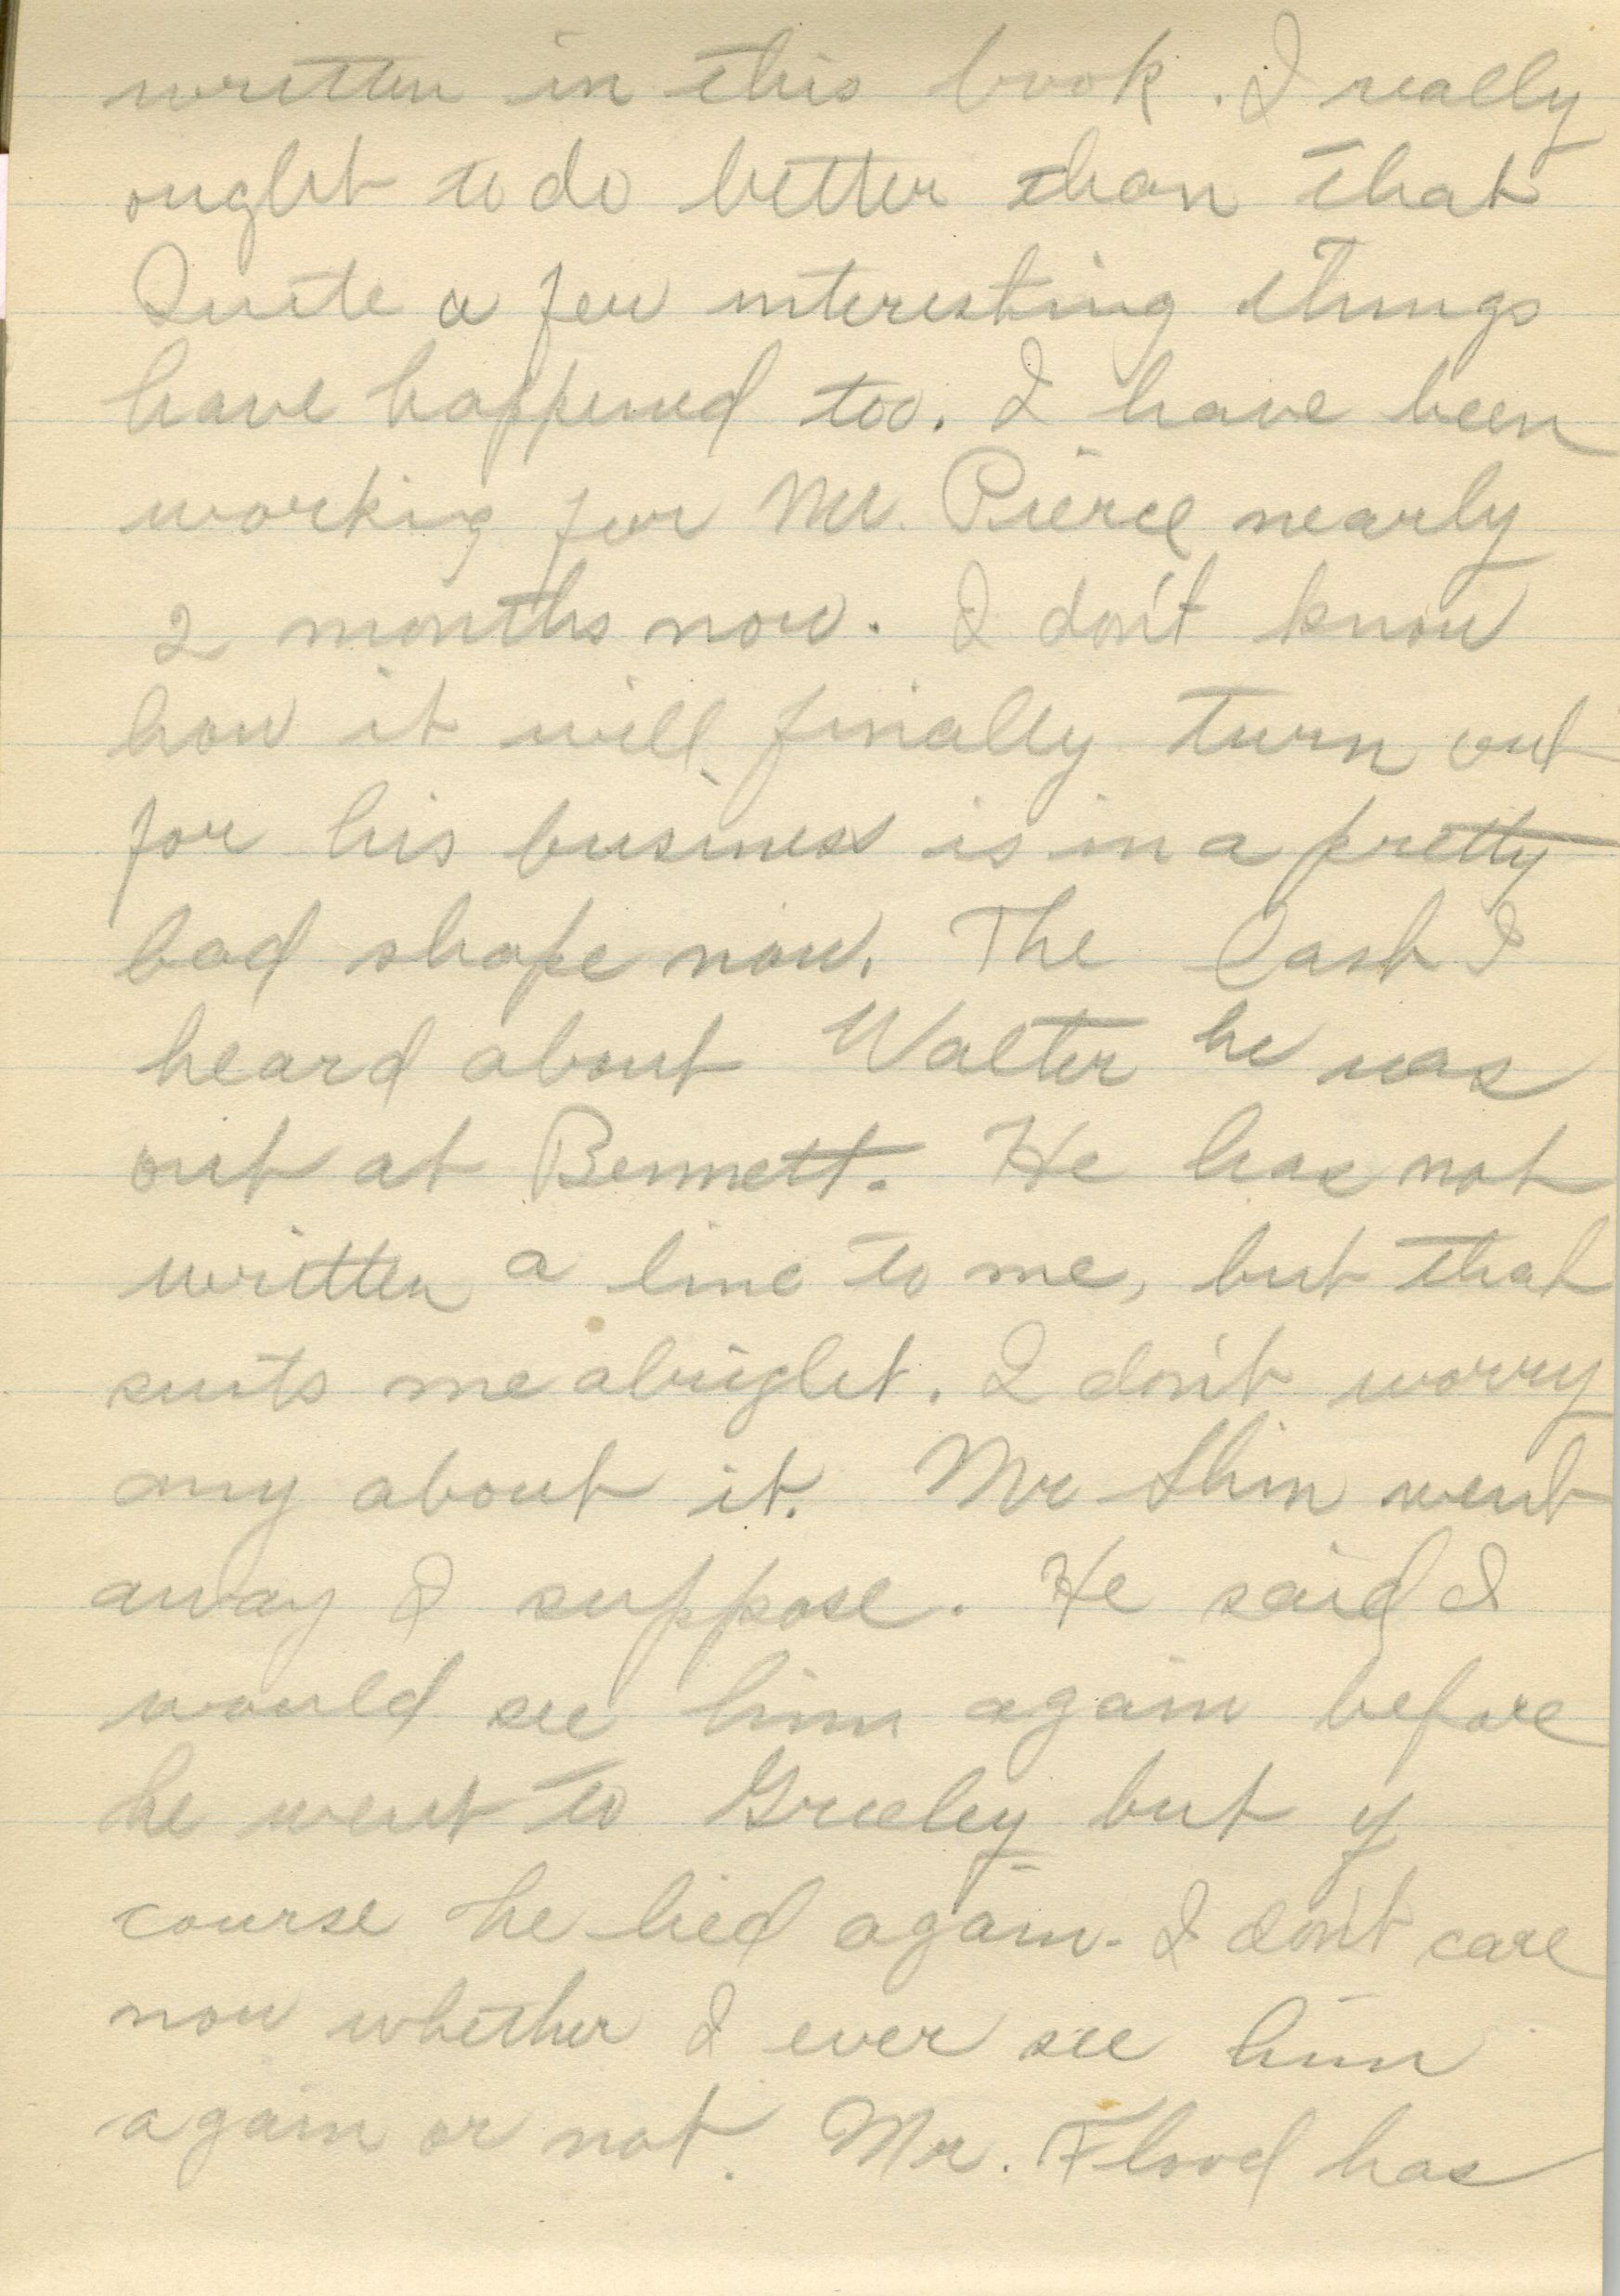 written in this book. I really
ought to do better than that
Quite a few interesting things
have happened too. I have been
working for Mr. Pierce nearly
2 months now. I don't know
how it will finally turn out
for his business is in a pretty
bad shape now. The last I
heard about Walter he was
out at Bennett. He has not
written a line to me, but that
suits me alright. I don't worry
any about it. Mr Shin went
away I suppose. He said I
would see him again before
he went to Greeley but of
course he lied again. I don't care
now whether I ever see him
again or not. Mr. Flood has